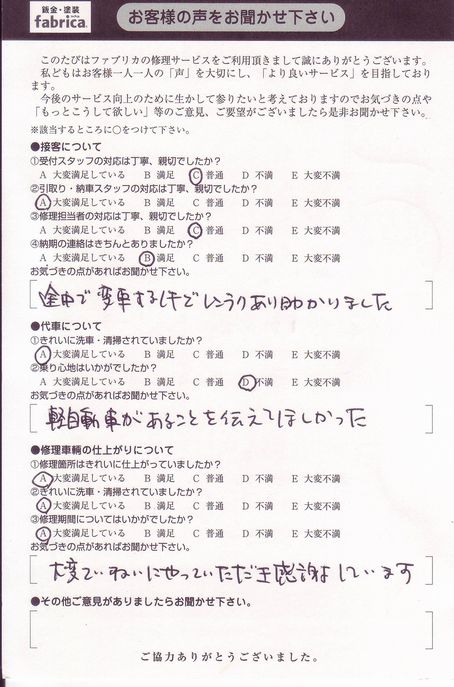 鈑金・塗装
fabrica.
お客様の声をお聞かせ下さい
このたびはファブリカの修理サービスをご利用頂きまして誠にありがとうございます。
私どもはお客様一人一人の「声」を大切にし、「より良いサービス」を目指しており
ます。
今後のサービス向上のために生かして参りたいと考えておりますのでお気づきの点や
「もっとこうして欲しい」等のご意見、ご要望がございましたら是非お聞かせ下さい。
※該当するところに○をつけて下さい。
●接客について
①受付スタッフの対応は丁寧、親切でしたか?
A 大変満足している B 満足 C 普通 D 不満 E 大変不満
②引取り・納車スタッフの対応は丁寧、親切でしたか?
A 大変満足している B 満足 C 普通 D 不満 E 大変不満
③修理担当者の対応は丁寧、親切でしたか?
A 大変満足している B 満足 C 普通 D 不満 E 大変不満
④納期の連絡はきちんとありましたか?
A 大変満足している B 満足 C 普通 D 不満 E 大変不満
お気づきの点があればお聞かせ下さい。
途中で変車する件でレンラクあり助かりました
●代車について
①きれいに洗車・清掃されていましたか?
A 大変満足している B 満足 C 普通 D 不満 E 大変不満
②乗り心地はいかがでしたか?
A 大変満足している B 満足 C 普通 D 不満 E 大変不満
お気づきの点があればお聞かせ下さい。
軽自動車があることを伝えてほしかった
●修理車輌の仕上がりについて
①修理箇所はきれいに仕上がっていましたか?
A 大変満足している B 満足 C 普通 D 不満 E 大変不満
②きれいに洗車・清掃されていましたか?
A 大変満足している B 満足 C 普通 D 不満 E 大変不満
③修理期間についてはいかがでしたか?
A 大変満足している B 満足 C 普通 D 不満 E 大変不満
お気づきの点があればお聞かせ下さい。
大変ていねいにやっていただき感謝しています
●その他ご意見がありましたらお聞かせ下さい。
ご協力ありがとうございました。